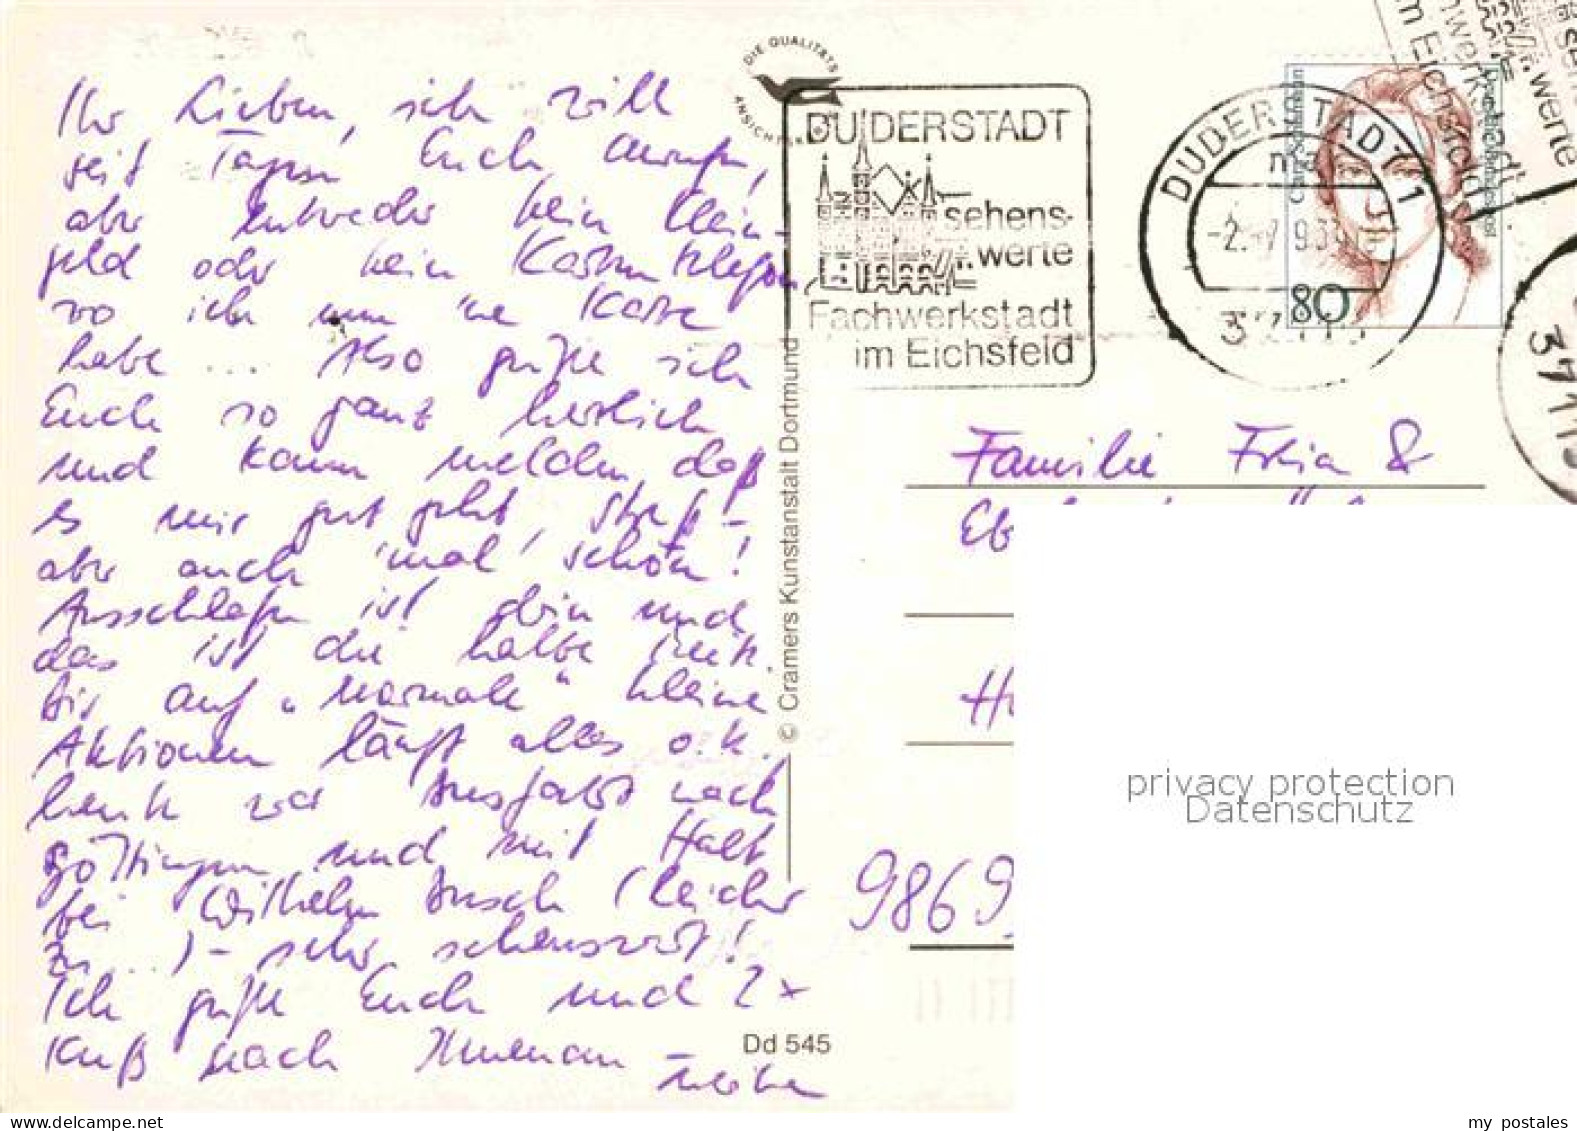 Ihr Lieben, ich will
seit Tagen Euch anrufen,
aber entweder kein Klein-
geld oder kein Kartentelefon,
wo ich nun 'ne Karte
habe ... Also grüße ich
Euch so ganz herzlich
und kann melden, daß
es mir gut geht,
aber auch 'mal schön!
Ausschlafen ist drin und
das ist die halbe
Bis auf „normale“ kleine
Aktionen läuft alles o.k.
heute war Ausfahrt nach
Göttingen und mit Halt
bei Wilhelm Busch (leider
zu ..) - sehr sehenswert!
Ich grüße Euch und 2x
Kuß nach Ilmenau
DIE QUALITÄTS
ANSICHTSKARTE
DUDERSTADT
sehens-
werte
Fachwerkstadt
im Eichsfeld
DUDERSTADT 1
Clara Schumann
Deutsche Bundespost
80
Familie &
9869
© Cramers Kunstanstalt Dortmund
Dd 545
privacy protection
Datenschutz
my postales